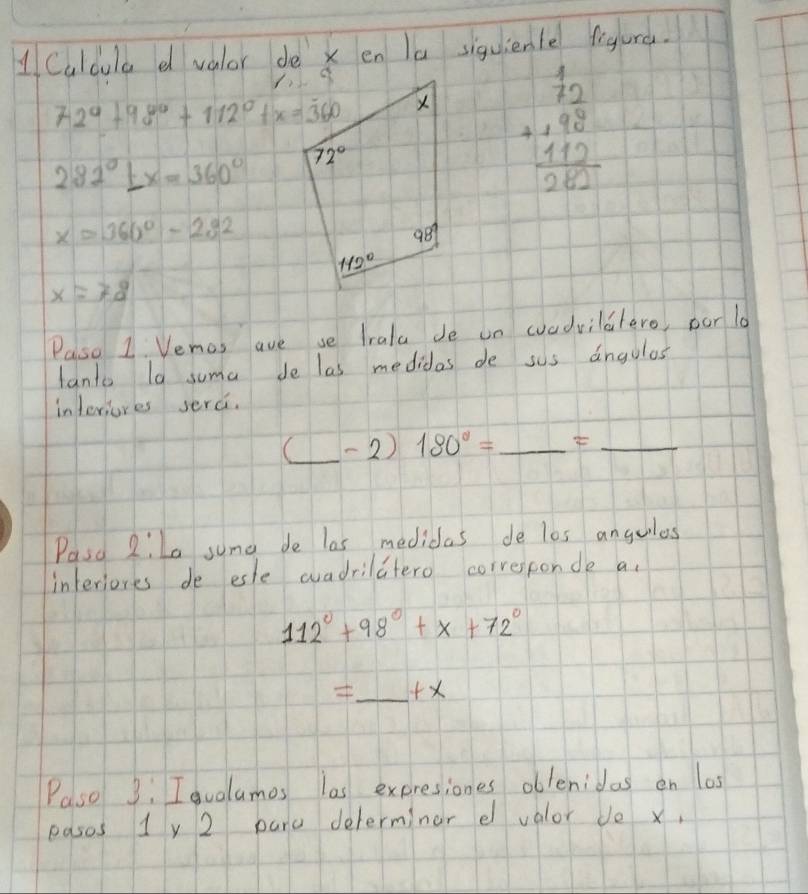 1. Calcula el valor de x en la siguiente figura.
72° + 98° + 112° + x = 360
282° + x = 360°
x = 360° - 282
x = 78
x
72°
98°
112°
1
72
+ 98
112
282
Paso 1. Vemos que se trata de un cuadrilátero, por lo
tanto la suma de las medidas de sus ángulos
interiores será.
(___ - 2) 180° = ___ = ___
Paso 2: La suma de las medidas de los angulos
interiores de este cuadrilátero corresponde a.
112° + 98° + x + 72°
= ___ + x
Paso 3: Igualamos las expresiones obtenidas en los
pasos 1 y 2 para determinar el valor de x.